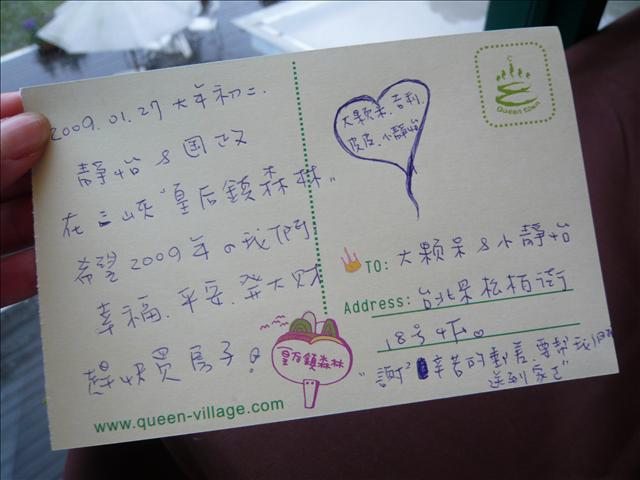 2009.01.27 大年初二
靜怡 & 国政
在三峽"皇后鎮森林"
希望2009年の我們
幸福.平安.發大財
趕快買房子。
www.queen-village.com
皇后鎮森林
大顆呆.吉利.
皮皮.小靜怡
Queen town
TO: 大顆呆 & 小靜怡
Address: 台北縣松柏街
18号4F。
"謝²辛苦的郵差.要幫我們
送到家